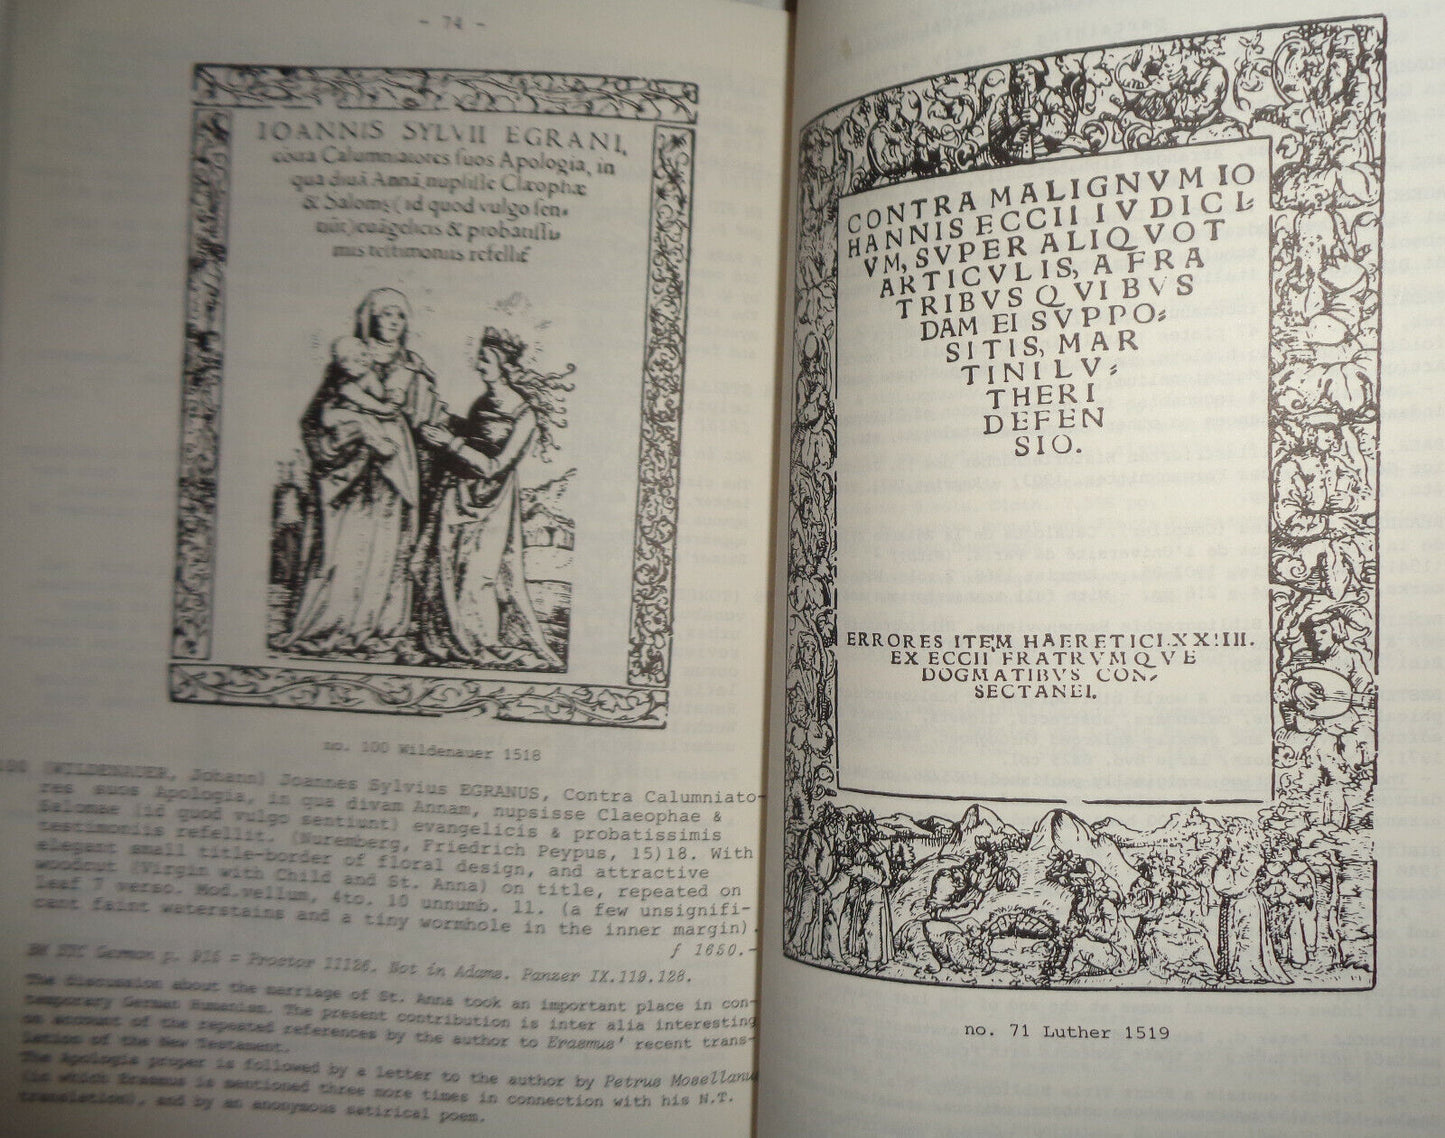 - 74 -
IOANNIS SYLVII EGRANI,
cōtra Calumniatores suos Apologia, in
qua diuā Annā nupsisse Clæophæ
& Salomę (id quod vulgo sen-
tiūt) euāgelicis & probatissi-
mis testimoniis refellit
no. 100 Wildenauer 1518
100 (WILDENAUER, Johann) Joannes Sylvius EGRANUS, Contra Calumniato-
res suos Apologia, in qua divam Annam, nupsisse Claeophae &
Salomae (id quod vulgo sentiunt) evangelicis & probatissimis
testimoniis refellit. (Nuremberg, Friedrich Peypus, 15)18. With
elegant small title-border of floral design, and attractive
woodcut (Virgin with Child and St. Anna) on title, repeated on
leaf 7 verso. Mod.vellum, 4to. 10 unnumb. ll. (a few unsignifi-
cant faint waterstains and a tiny wormhole in the inner margin).
f 1650.-
BM STC German p. 916 = Proctor 11126. Not in Adams. Panzer IX.119.128.
The discussion about the marriage of St. Anna took an important place in con-
temporary German Humanism. The present contribution is inter alia interesting
on account of the repeated references by the author to Erasmus' recent trans-
lation of the New Testament.
The Apologia proper is followed by a letter to the author by Petrus Mosellanus
(in which Erasmus is mentioned three more times in connection with his N.T.
translation), and by an anonymous satirical poem.
CONTRA MALIGNVM IO
HANNIS ECCII IVDICI-
VM, SVPER ALIQVOT
ARTICVLIS, A FRA
TRIBVS QVIBVS
DAM EI SVPPO-
SITIS, MAR
TINI LV-
THERI
DEFEN
SIO.
ERRORES ITEM HAERETICI.XXIIII.
EX ECCII FRATRVMQVE
DOGMATIBVS CON-
SECTANEI.
no. 71 Luther 1519